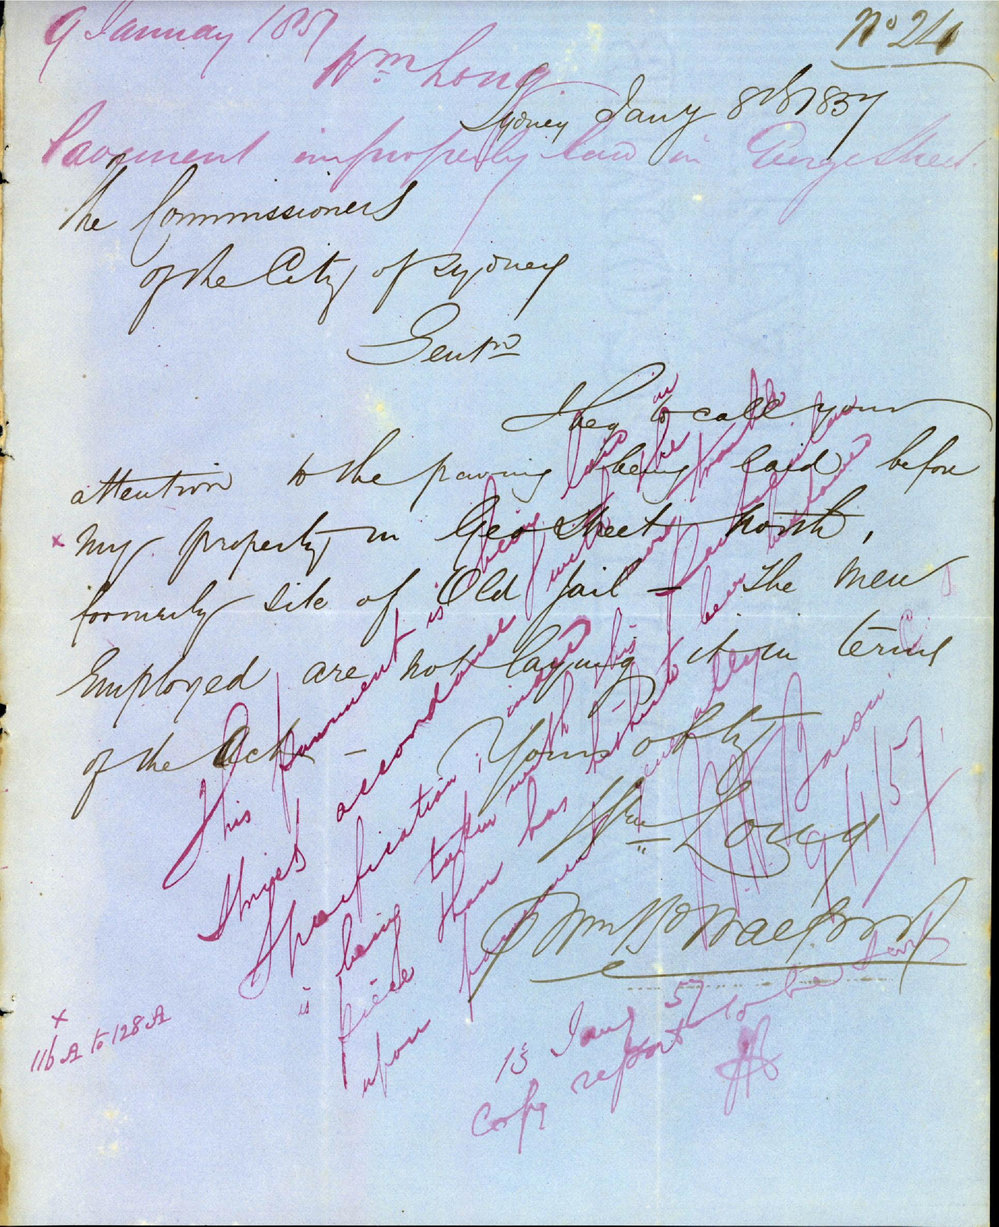 9 January 1857
Wm Long
No 24
Sydney Jany 8th 1857
Pavement improperly laid in George Street.
The Commissioners
of the City of Sydney
Gentn
I beg to call your
attention to the paving being laid before
x my property in Geo Street North,
formerly site of Old Jail - The men
Employed are not laying it in terms
of the Act - Yours obtly
Wm Long
p Wm B
This pavement is being laid in
strict accordance with the
specification, indeed more trouble
is being taken with this particular
piece than has hitherto been bestowed
upon pavement generally
9/1/57
x
116 A to 128 A
13 Jany 57
Copy report to be sent